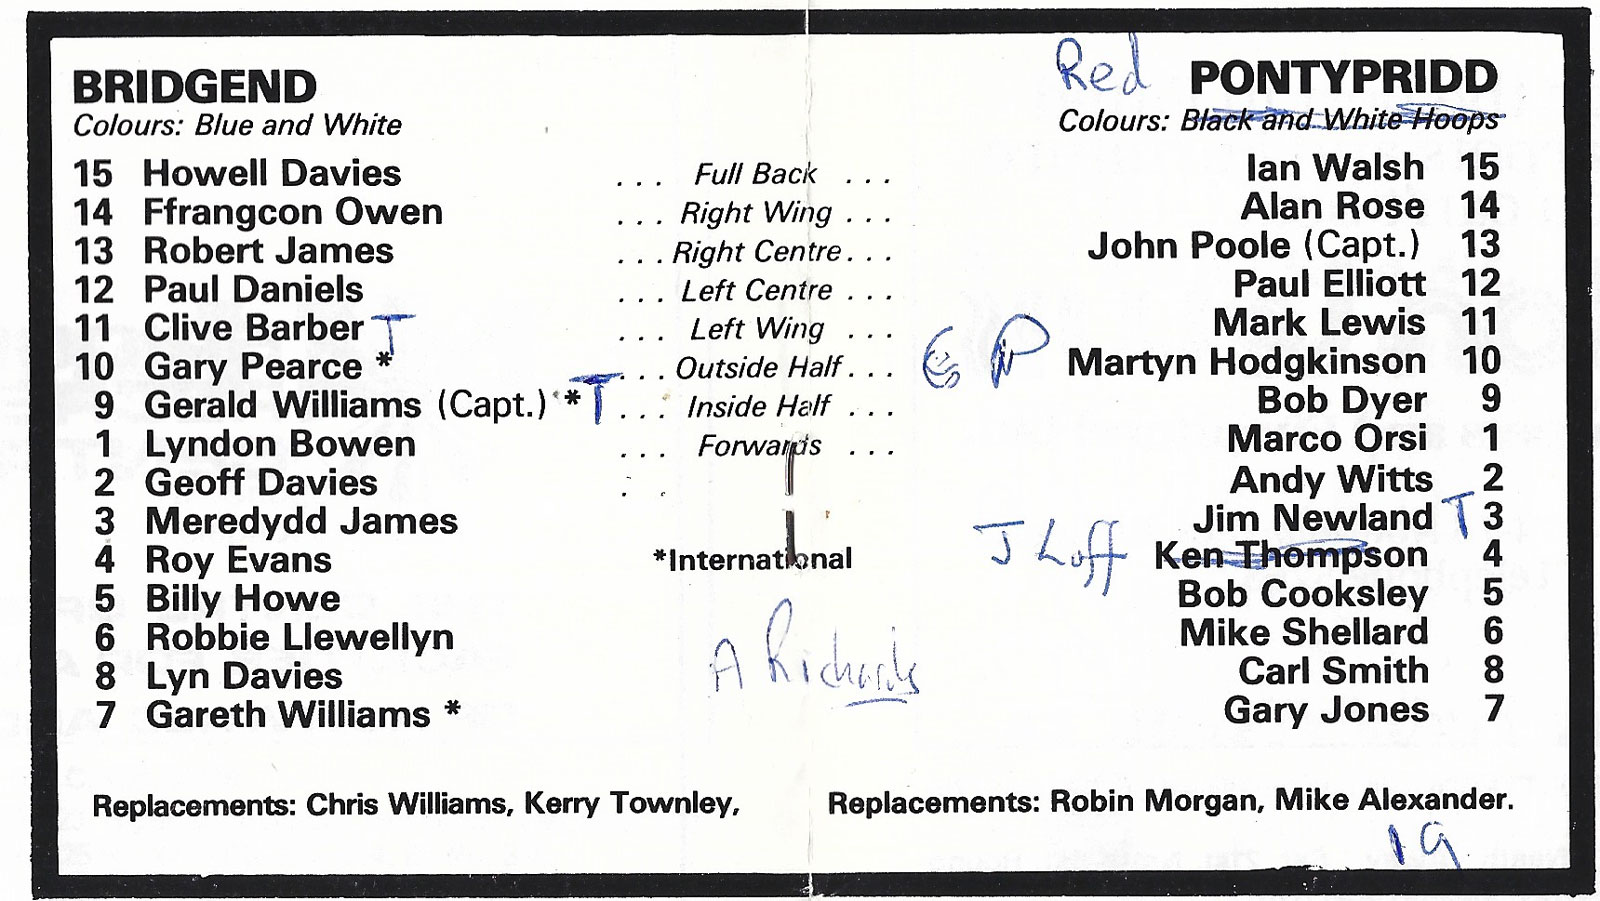 BRIDGEND
Colours: Blue and White
Red PONTYPRIDD
Colours: Black and White Hoops
15 Howell Davies ... Full Back ... Ian Walsh 15
14 Ffrangcon Owen ... Right Wing ... Alan Rose 14
13 Robert James ... Right Centre... John Poole (Capt.) 13
12 Paul Daniels ... Left Centre ... Paul Elliott 12
11 Clive Barber T ... Left Wing ... Mark Lewis 11
10 Gary Pearce * ... Outside Half... P Martyn Hodgkinson 10
9 Gerald Williams (Capt.) * T ... Inside Half ... Bob Dyer 9
1 Lyndon Bowen ... Forwards ... Marco Orsi 1
2 Geoff Davies . . Andy Witts 2
3 Meredydd James Jim Newland T 3
4 Roy Evans *International J Luff Ken Thompson 4
5 Billy Howe Bob Cooksley 5
6 Robbie Llewellyn Mike Shellard 6
8 Lyn Davies A Richards Carl Smith 8
7 Gareth Williams * Gary Jones 7
Replacements: Chris Williams, Kerry Townley,
Replacements: Robin Morgan, Mike Alexander.
19